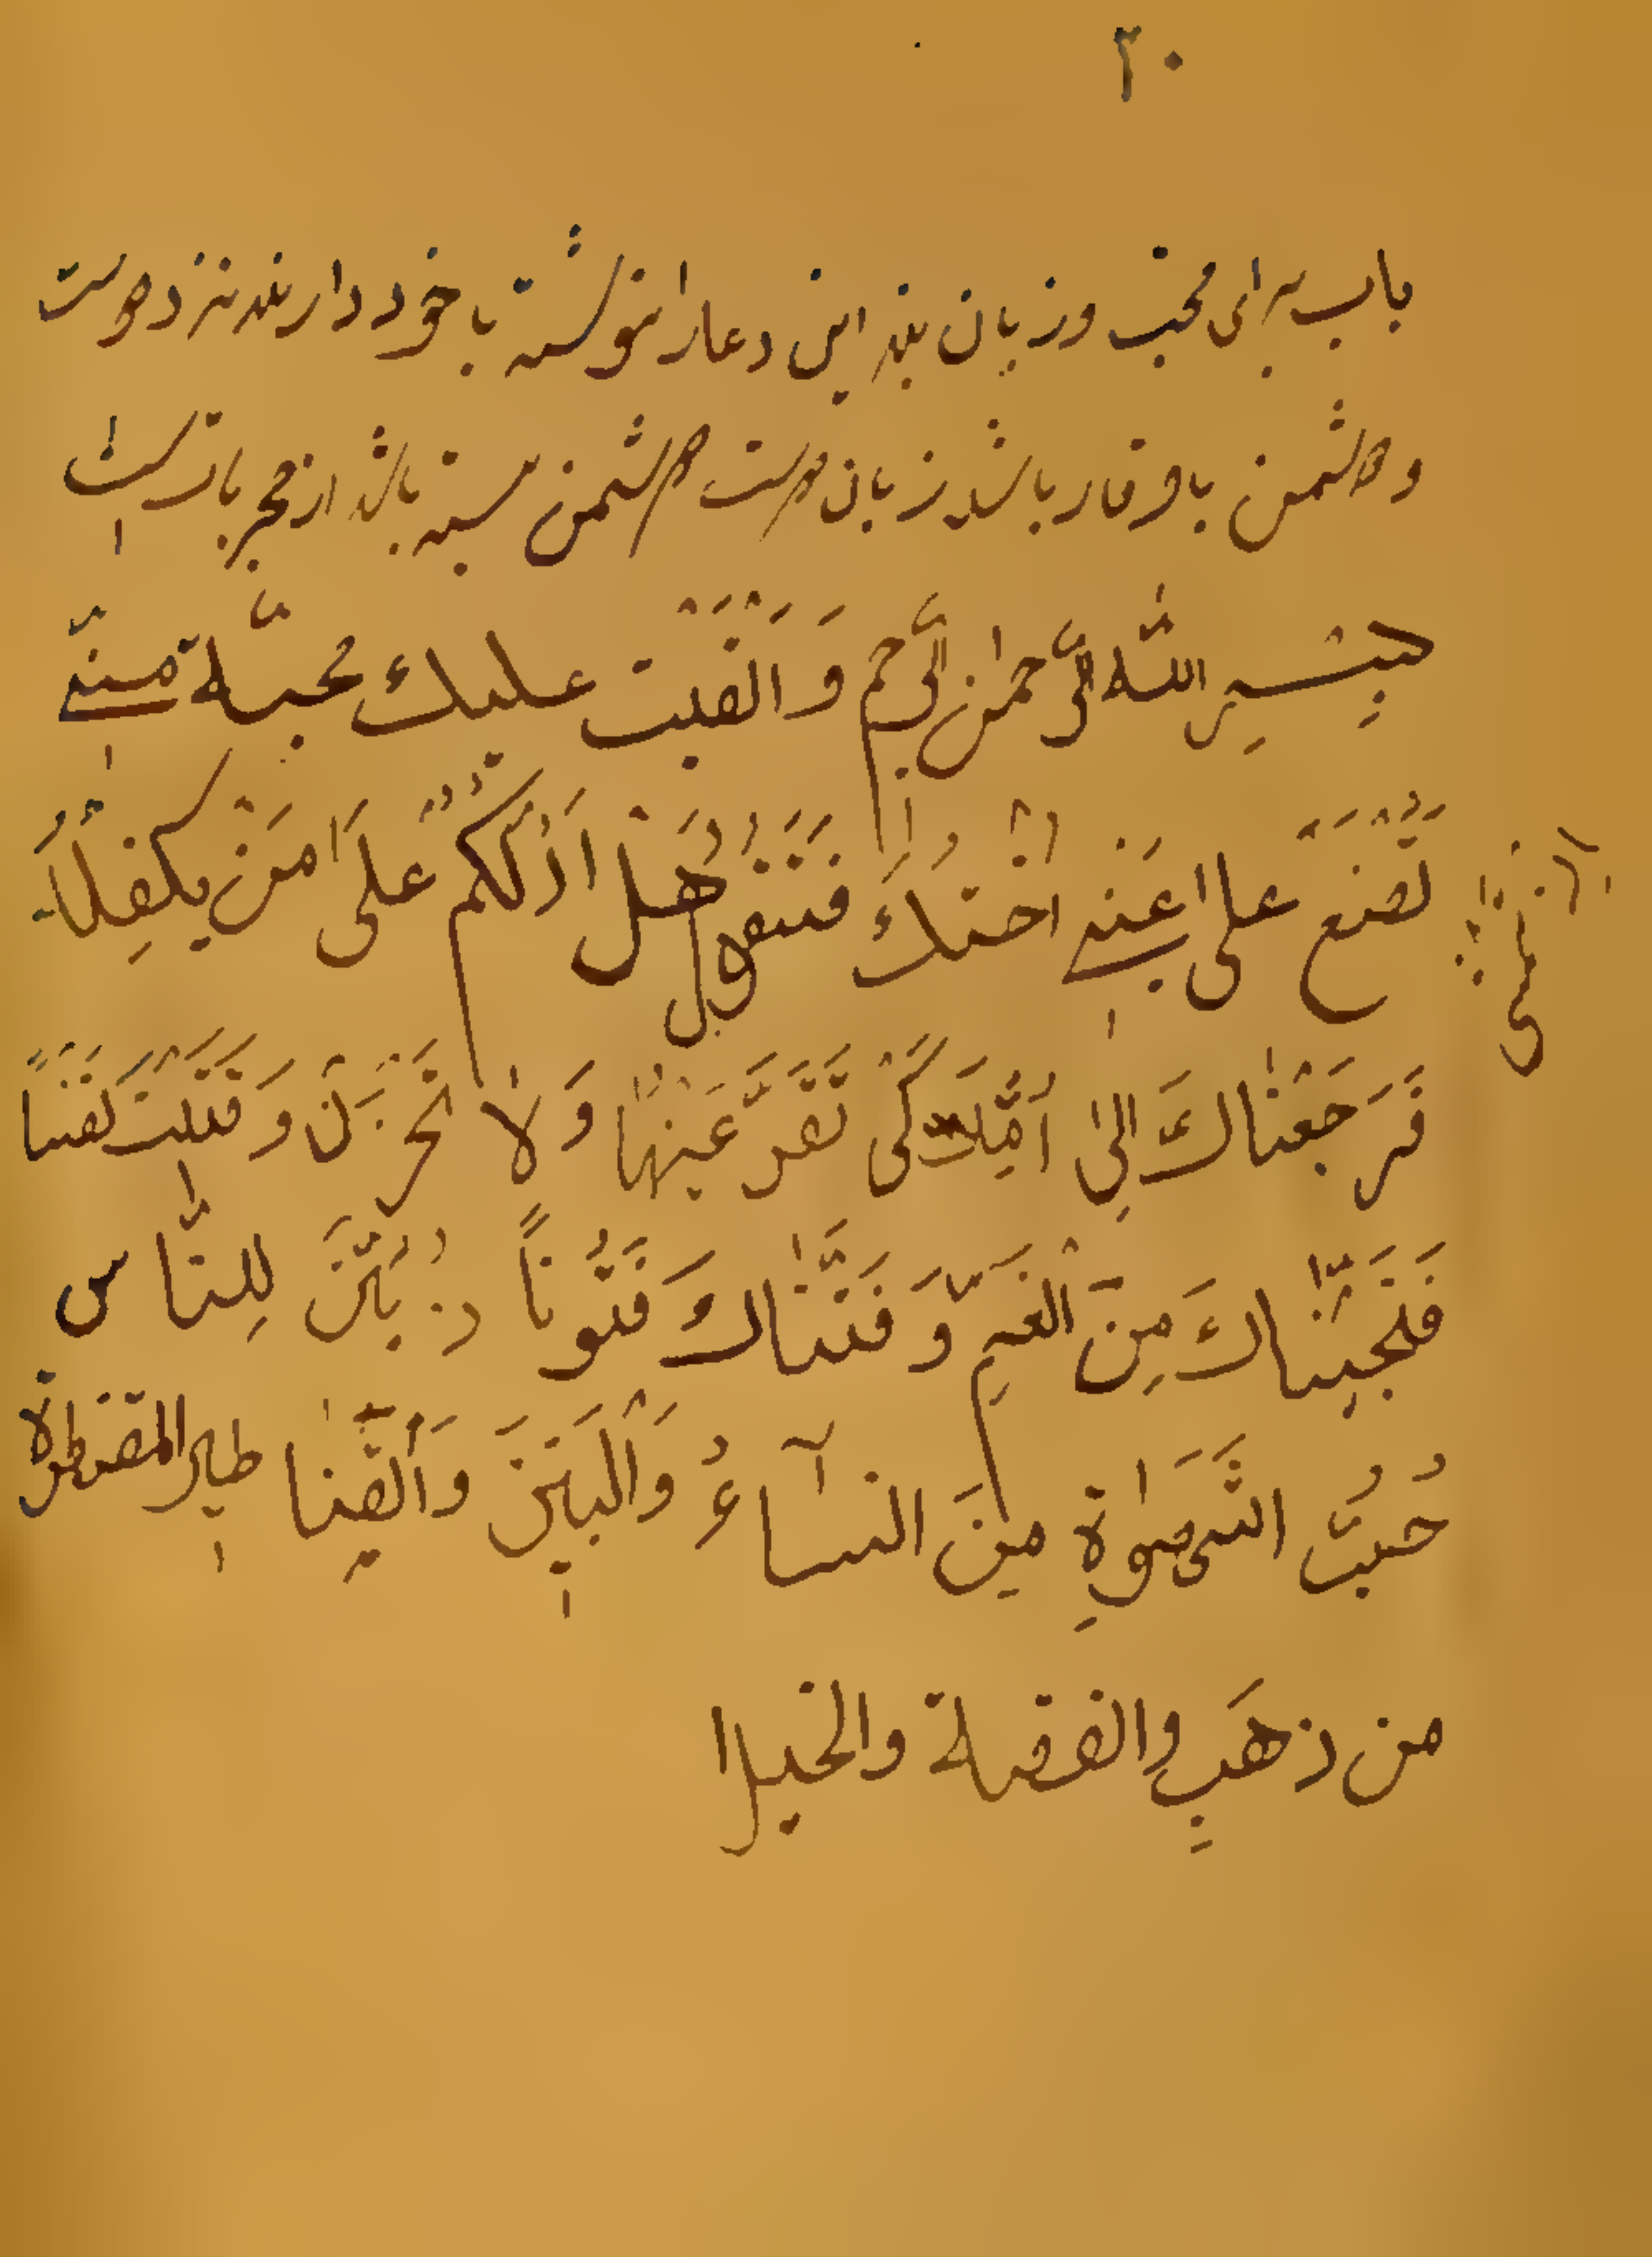 ۳۰
باب برای محبت و زبان بند این دعا را نوشته با خود دارند نزد دوست
و دشمن با وقار باشد زبان دوست دشمن بسته باشد از مجربات است
بِسْمِ اللّٰهِ الرَّحْمٰنِ الرَّحِيمِ وَاَلْقَيْتُ عليك محبّة منّي
تُصْنَعَ على عَيْني اختكَ فتقول هَلْ اَدُلُّكُمْ عَلىَ مَنْ يكفِلُهُ
فَرَجَعْنٰاكَ اِلىٰ اُمِّكَ كَىْ تَقَرَّ عَيْنُهٰا وَلاٰ تَحْزَنَ وَقَتَلْتَ نَفْسًا
فَنَجَّيْنٰاكَ مِنَ الْغَمِّ وَفَتَنّٰاكَ فُتُوناً زُيِّنَ لِلنّٰاسِ
حُبُّ الشَّهَوٰاةِ مِنَ النسآءِ وَالْبَنينَ وَالْقَنٰا طير المقنطرة
من ذهَبِ والفضة والخيل ا